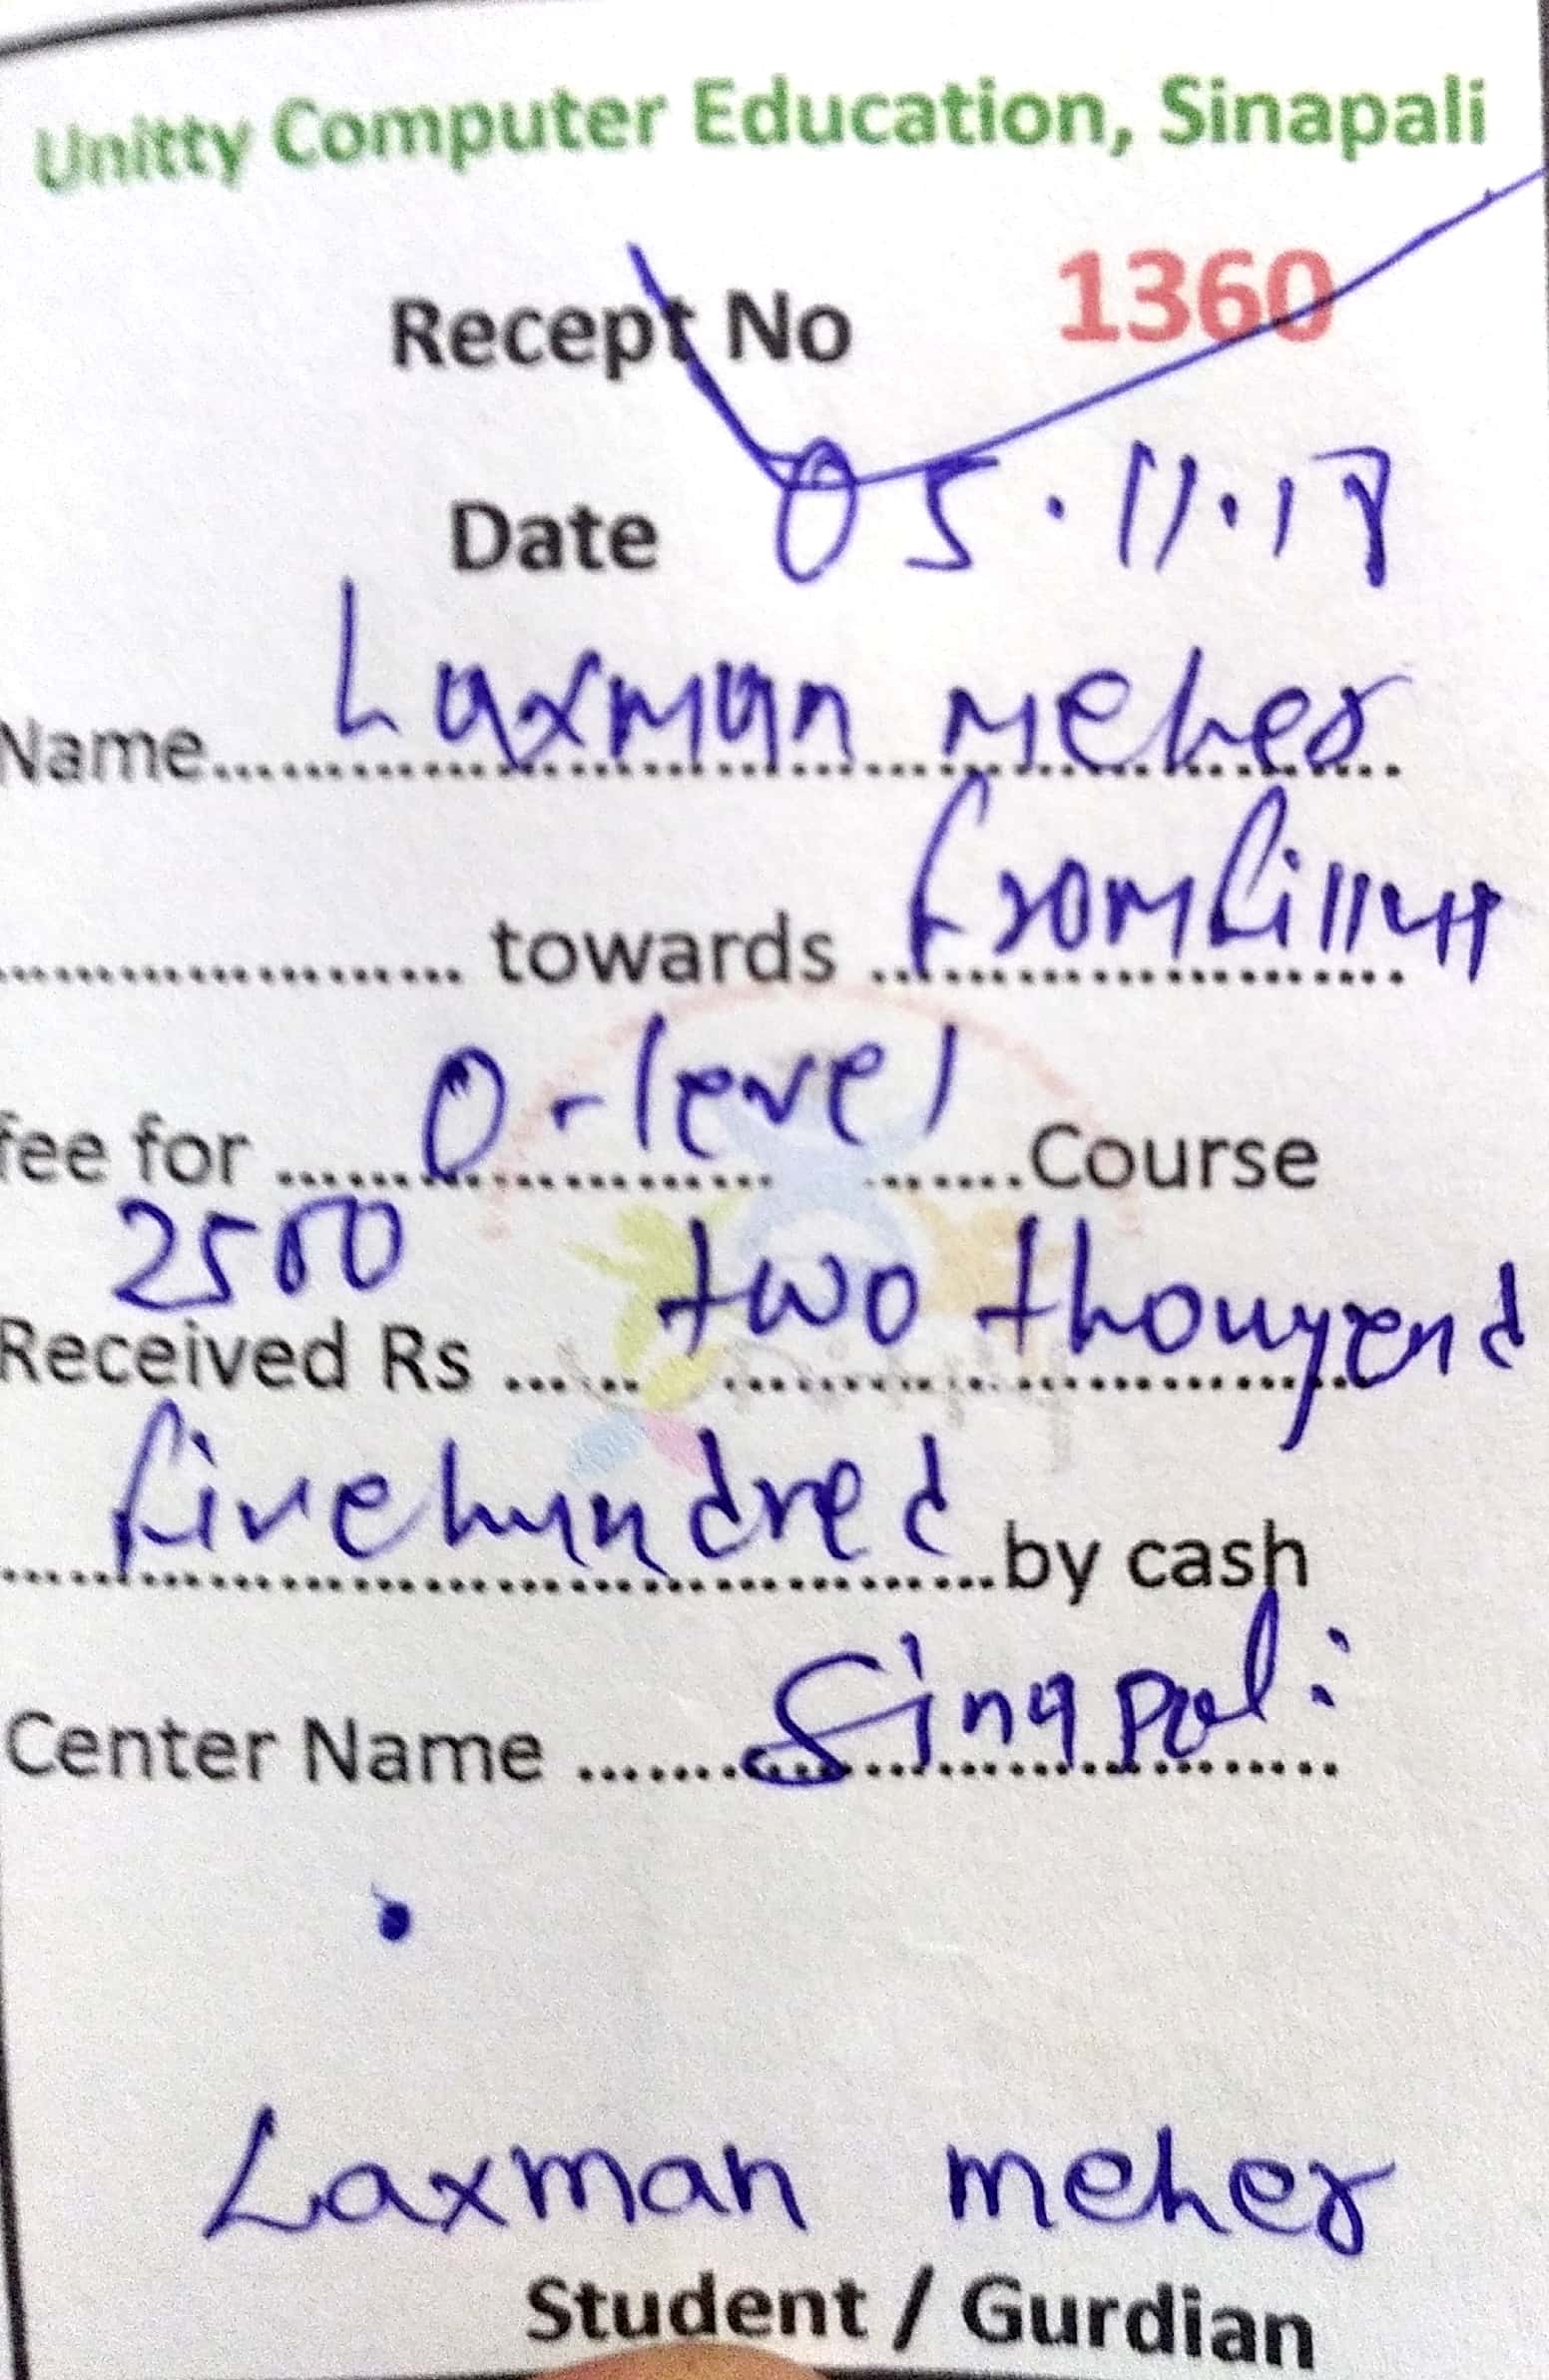 Unitty Computer Education, Sinapali
Recept No 1360
Date 05.11.18
Name.......Laxman meher
........ towards ....... fromfillup
fee for ....... O-level .......Course
2500
Received Rs ....... two thousend
fivehundred .......by cash
Center Name ....... Sinapali
Laxman meher
Student / Gurdian